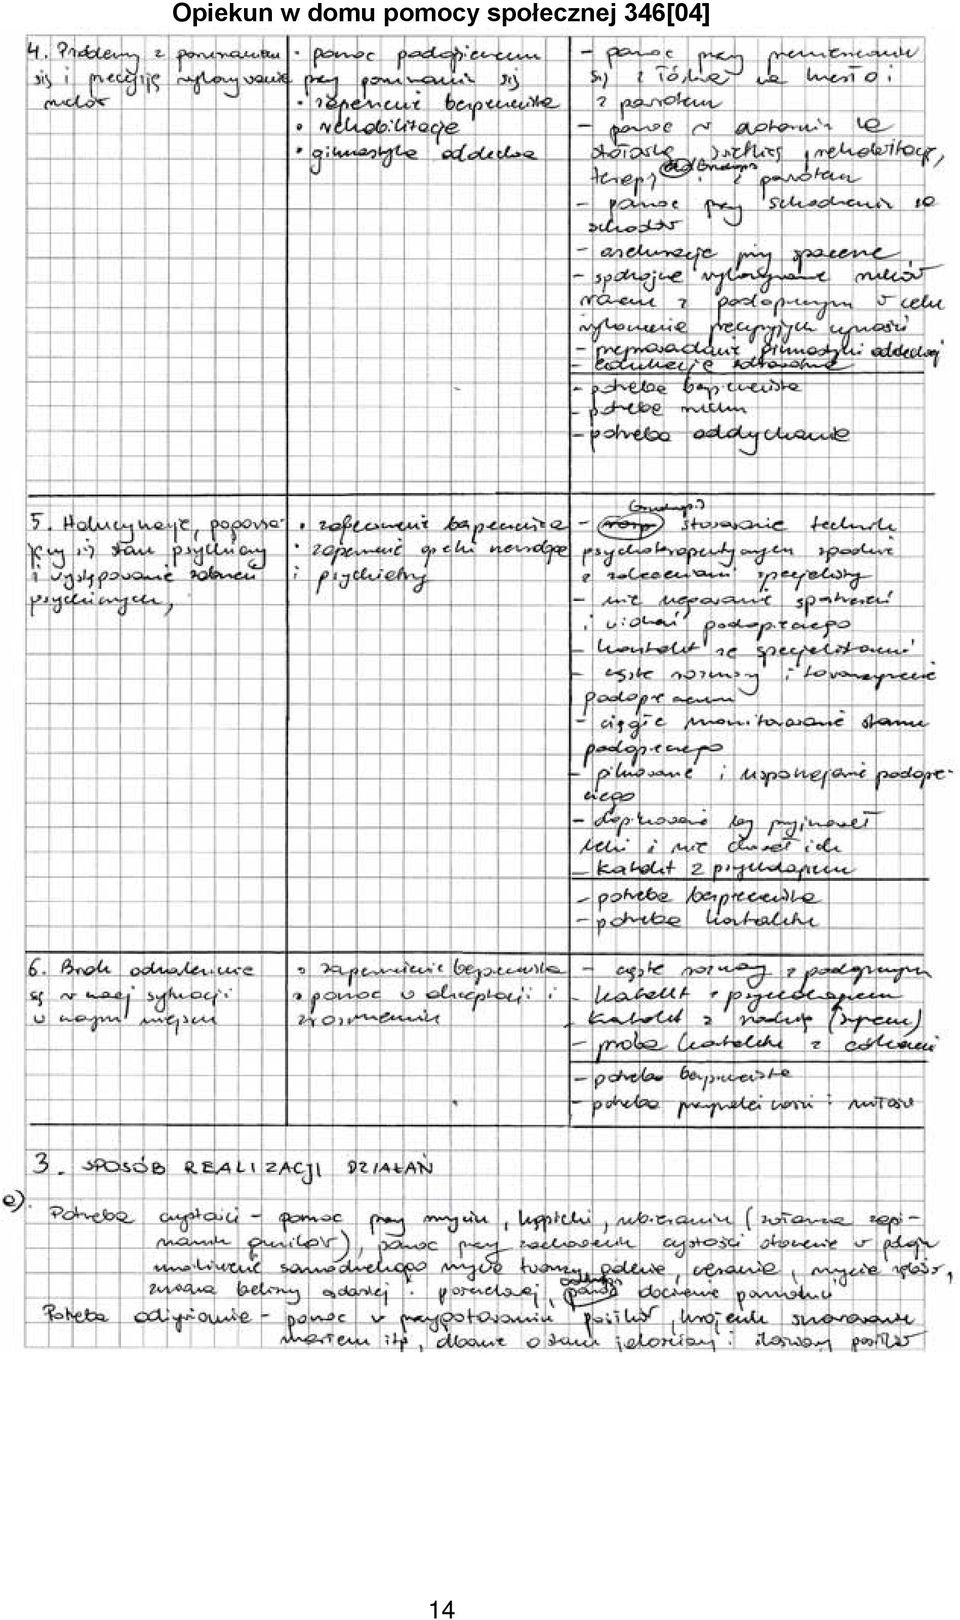 Opiekun w domu pomocy społecznej 346[04]
4. Problemy z poruszaniem
się i precyzją wykonywania
ruchów
• pomoc podopiecznemu
przy poruszaniu się
• zapewnienie bezpieczeństwa
• rehabilitacja
• gimnastyka oddechowa
- pomoc przy przemieszczaniu
się z łóżka na krzesło i
z powrotem
- pomoc w dotarciu na
stołówkę, rehabilitację,
terapię i z powrotem
- pomoc przy schodzeniu ze
schodów
- asekuracja przy spacerze
- spokojne wykonywanie ruchów
razem z podopiecznym w celu
wykonania precyzyjnych czynności
- przeprowadzanie gimnastyki oddechowej
- edukacja zdrowotna
- potrzeba bezpieczeństwa
- potrzeba ruchu
- potrzeba oddychania
5. Halucynacje, pogarsza-
jący się stan psychiczny
i występowanie zaburzeń
psychicznych,
• zapewnienie bezpieczeństwa
• zapewnienie opieki neurologa
i psychiatry
- stosowanie technik
psychoterapeutycznych zgodnie
z zaleceniami specjalisty
- nie negowanie spostrzeżeń
i widzeń podopiecznego
- kontakt ze specjalistami
- częste rozmowy i towarzyszenie
podopiecznemu
- ciągłe monitorowanie stanu
podopiecznego
- pilnowanie i uspokajanie podopie-
cznego
- dopilnowanie by przyjmował
leki i nie chował ich
- kontakt z psychologiem
- potrzeba bezpieczeństwa
- potrzeba kontaktu
6. Brak odnalezienia
się w nowej sytuacji
w nowym miejscu
• zapewnienie bezpieczeństwa
• pomoc w akceptacji i
zrozumieniu
- częste rozmowy z podopiecznym
- kontakt z psychologiem
- kontakt z rodziną (synem)
- próba kontaktu z córkami
- potrzeba bezpieczeństwa
- potrzeba przynależności i miłości
3. SPOSÓB REALIZACJI DZIAŁAŃ
a).
Potrzeba czystości - pomoc przy myciu, kąpieli, ubieraniu (zwłaszcza zapi-
naniu guzików), pomoc przy zachowaniu czystości otoczenia w pokoju
umożliwienie samodzielnego mycia twarzy, golenie, czesanie, mycie włosów,
zmiana bielizny osobistej i pościelowej, obcinanie paznokci
Potrzeba odżywiania - pomoc w przygotowaniu posiłków, krojeniu smarowaniu
masłem itp, dbanie o stan jakościowy i ilościowy posiłków
14